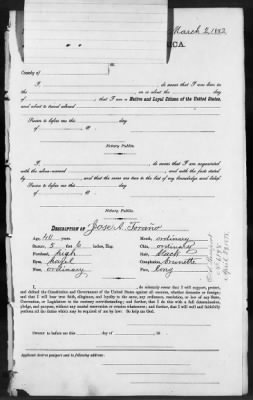 March 2, 1882
ICA.
ss.
County of
I, do swear that I was born in
the , on or about the day
of , that I am a Native and Loyal Citizen of the United States,
and about to travel abroad
Sworn to before me this day
of 18 .
Notary Public.
I, do swear that I am acquainted
with the above-named , and with the facts stated
by , and that the same are true to the best of my knowledge and belief.
Sworn to before me this day
of 18 .
Notary Public.
DESCRIPTION OF Jose A. Toraño
Age, 40 years. Mouth, ordinary
Stature, 5 feet 6 inches, Eng. Chin, ordinary
Forehead, high Hair, black
Eyes, hazel Complexion, brunette
Nose, ordinary Face, long
I, , do solemnly swear that I will support, protect,
and defend the Constitution and Government of the United States against all enemies, whether domestic or foreign;
and that I will bear true faith, allegiance, and loyalty to the same, any ordinance, resolution, or law of any State,
Convention, or Legislature to the contrary notwithstanding; and further, that I do this with a full determination,
pledge, and purpose, without any mental reservation or evasion whatsoever; and further, that I will well and faithfully
perform all the duties which may be required of me by law: So help me God.
Sworn to before me this day of , 18 .
Applicant desires passport to be sent to